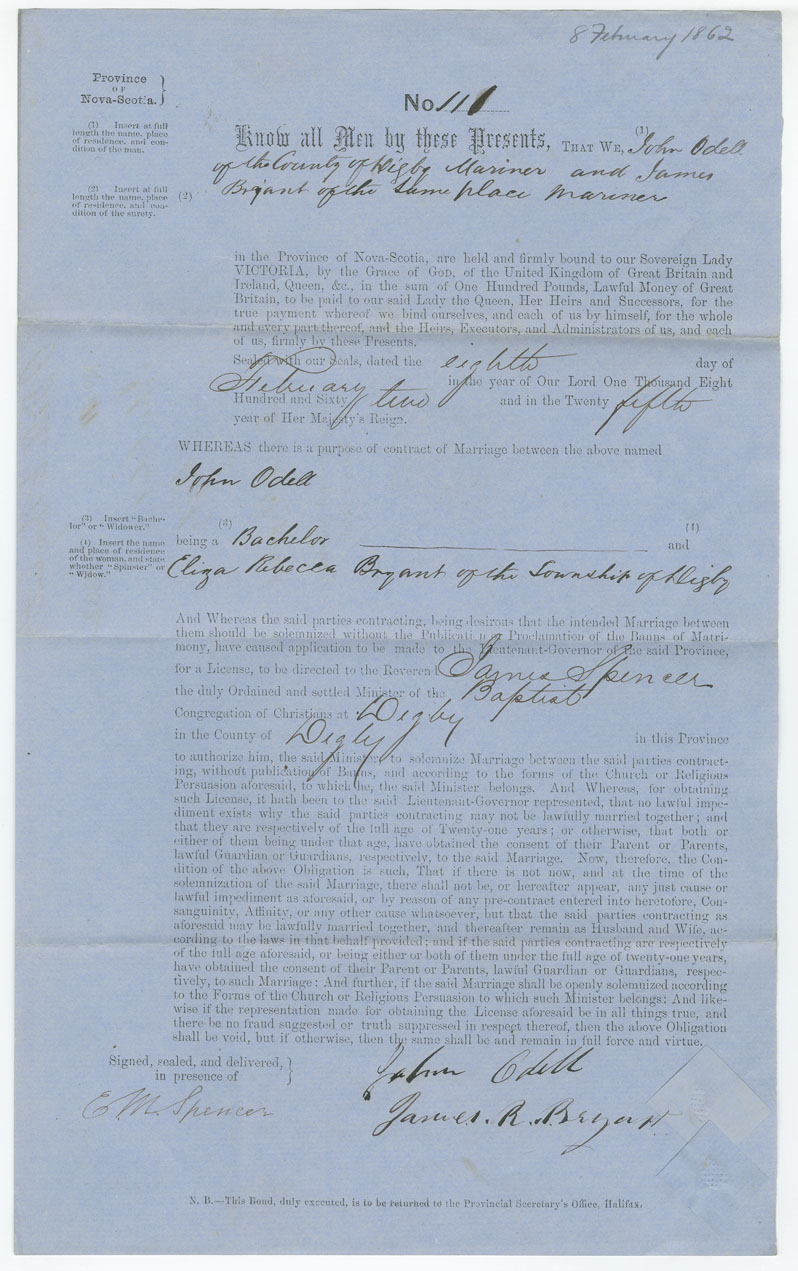 8 February 1862
Province
OF
Nova-Scotia.
No 111
(1) Insert at full
length the name, place
of residence, and con-
dition of the man.
Know all Men by these Presents, THAT WE, (1) John Odell
of the County of Digby Mariner and James
(2) Insert at full
length the name, place
of residence, and con-
dition of the surety.
(2) Bryant of the same place mariner
in the Province of Nova-Scotia, are held and firmly bound to our Sovereign Lady
VICTORIA, by the Grace of GOD, of the United Kingdom of Great Britain and
Ireland, Queen, &c., in the sum of One Hundred Pounds, Lawful Money of Great
Britain, to be paid to our said Lady the Queen, Her Heirs and Successors, for the
true payment whereof we bind ourselves, and each of us by himself, for the whole
and every part thereof, and the Heirs, Executors, and Administrators of us, and each
of us, firmly by these Presents.
Sealed with our Seals, dated the eighth day of
February in the year of Our Lord One Thousand Eight
Hundred and Sixty two and in the Twenty fifth
year of Her Majesty's Reign.
WHEREAS there is a purpose of contract of Marriage between the above named
John Odell
(3) Insert "Bache-
lor" or "Widower."
(3) (4)
being a Bachelor and
(4) Insert the name
and place of residence
of the woman, and state
whether "Spinster" or
"Widow."
Eliza Rebecca Bryant of the Township of Digby
And Whereas the said parties contracting, being desirous that the intended Marriage between
them should be solemnized without the Publication or Proclamation of the Banns of Matri-
mony, have caused application to be made to the Lieutenant-Governor of the said Province,
for a License, to be directed to the Reverend James Spencer
the duly Ordained and settled Minister of the Baptist
Congregation of Christians at Digby
in the County of Digby in this Province
to authorize him, the said Minister, to solemnize Marriage between the said parties contract-
ing, without publication of Banns, and according to the forms of the Church or Religious
Persuasion aforesaid, to which he, the said Minister belongs. And Whereas, for obtaining
such License, it hath been to the said Lieutenant-Governor represented, that no lawful impe-
diment exists why the said parties contracting may not be lawfully married together; and
that they are respectively of the full age of Twenty-one years; or otherwise, that both or
either of them being under that age, have obtained the consent of their Parent or Parents,
lawful Guardian or Guardians, respectively, to the said Marriage. Now, therefore, the Con-
dition of the above Obligation is such, That if there is not now, and at the time of the
solemnization of the said Marriage, there shall not be, or hereafter appear, any just cause or
lawful impediment as aforesaid, or by reason of any pre-contract entered into heretofore, Con-
sanguinity, Affinity, or any other cause whatsoever, but that the said parties contracting as
aforesaid may be lawfully married together, and thereafter remain as Husband and Wife, ac-
cording to the laws in that behalf provided; and if the said parties contracting are respectively
of the full age aforesaid, or being either or both of them under the full age of twenty-one years,
have obtained the consent of their Parent or Parents, lawful Guardian or Guardians, respec-
tively, to such Marriage: And further, if the said Marriage shall be openly solemnized according
to the Forms of the Church or Religious Persuasion to which such Minister belongs: And like-
wise if the representation made for obtaining the License aforesaid be in all things true, and
there be no fraud suggested or truth suppressed in respect thereof, then the above Obligation
shall be void, but if otherwise, then the same shall be and remain in full force and virtue.
Signed, sealed, and delivered,
in presence of
John Odell
E M Spencer
James. R. Bryant
N. B.—This Bond, duly executed, is to be returned to the Provincial Secretary's Office, Halifax.